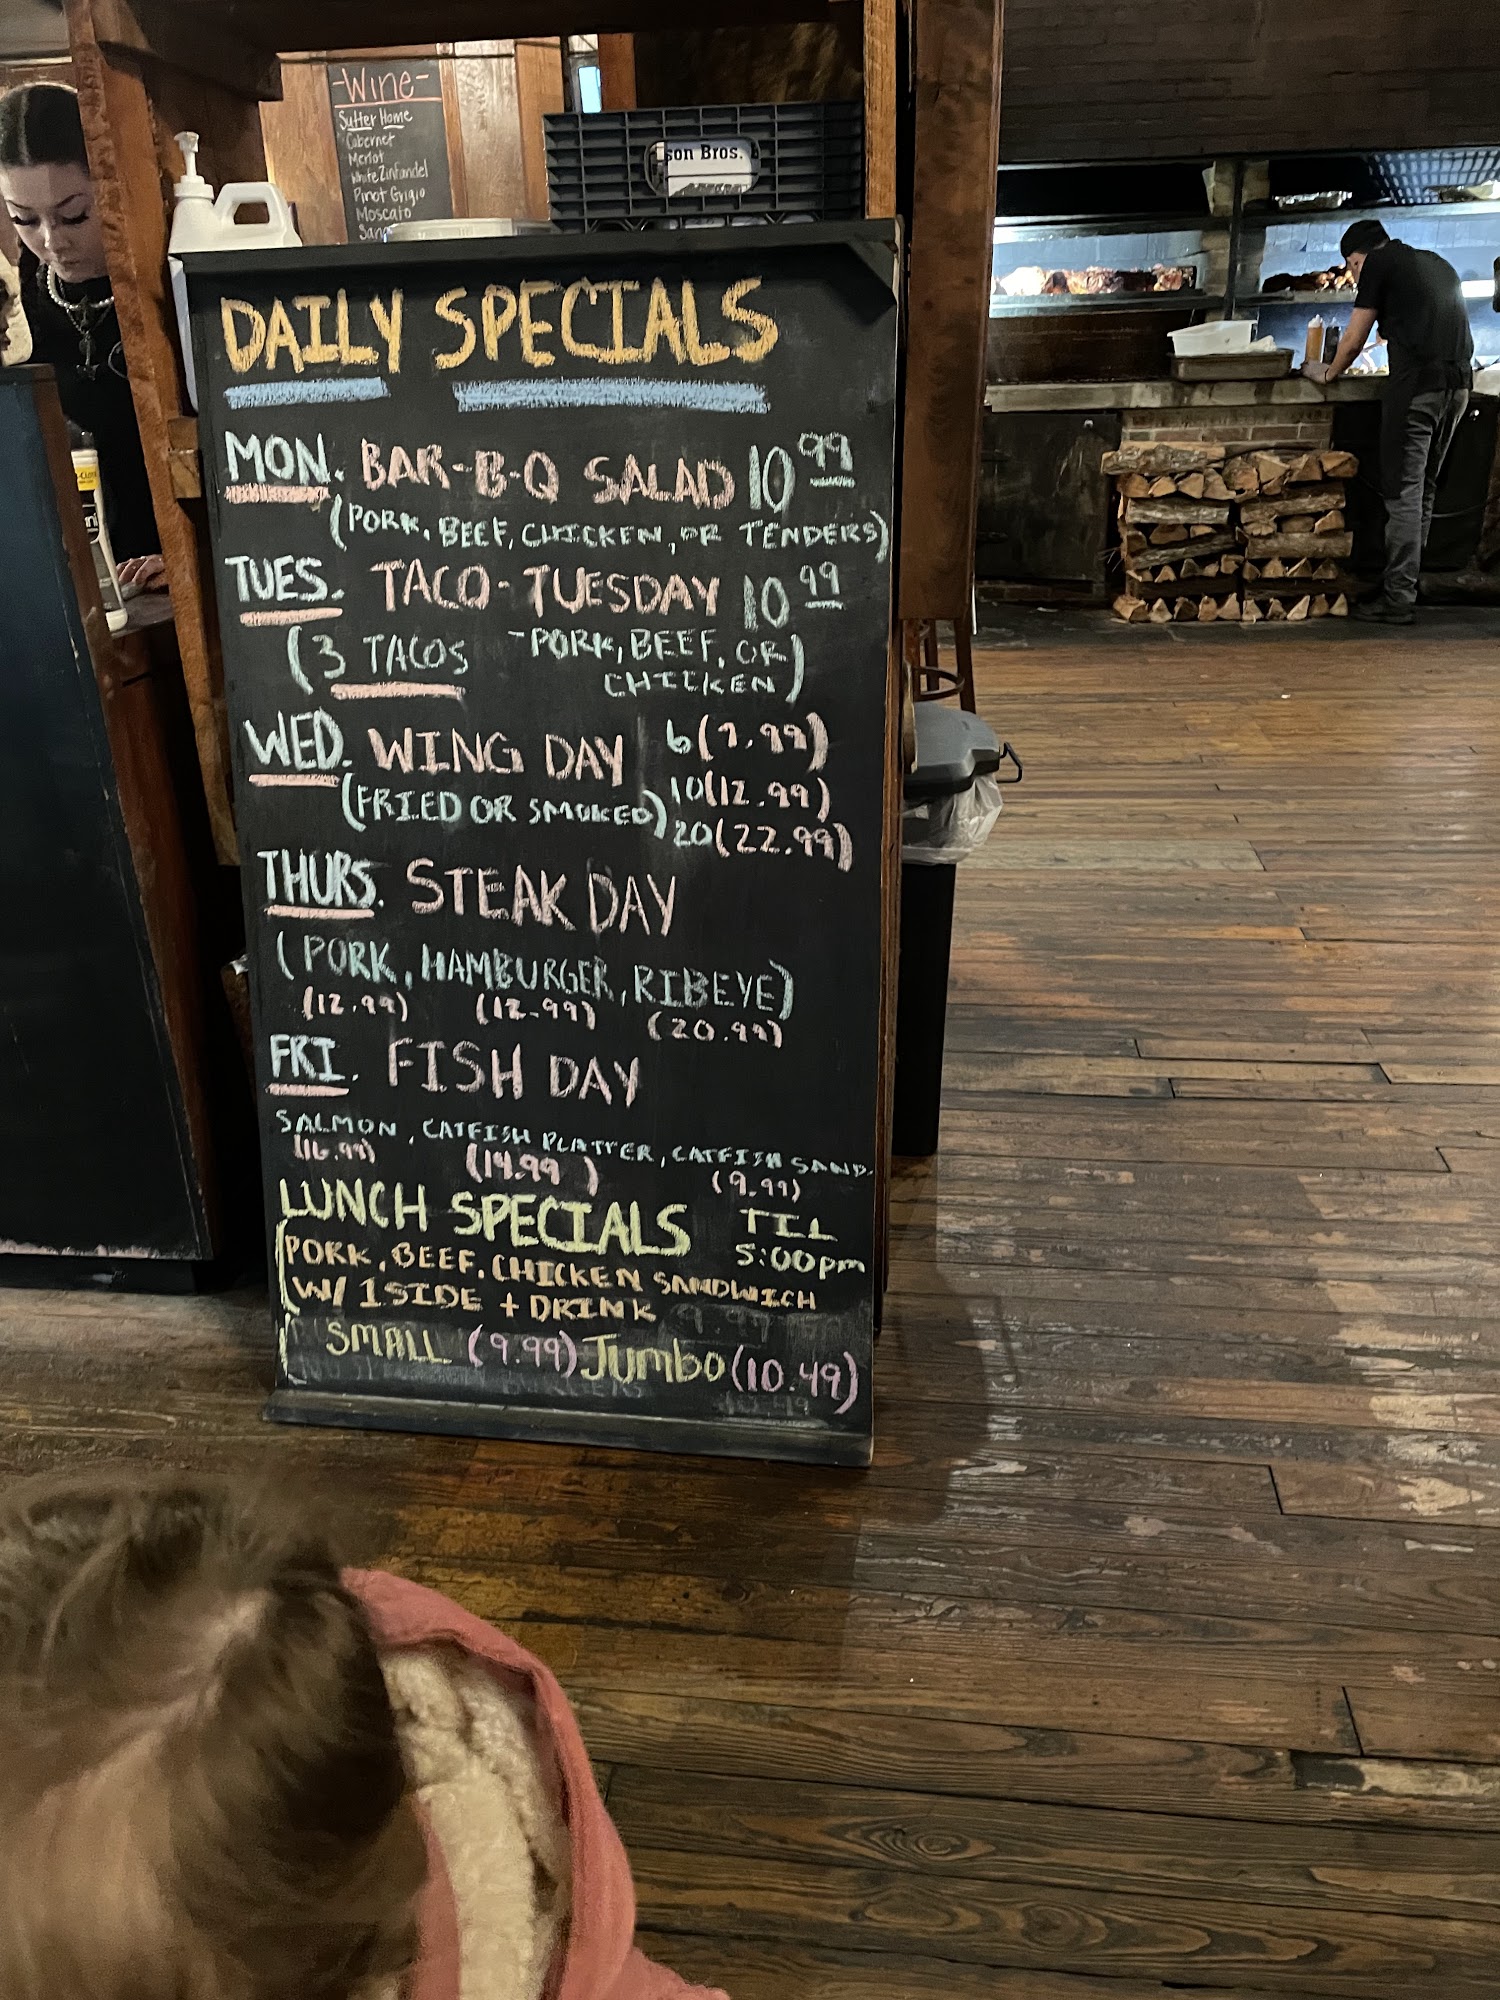 -Wine-
Sutter Home
Cabernet
Merlot
White Zinfandel
Pinot Grigio
Moscato
son Bros.
DAILY SPECIALS
MON. BAR-B-Q SALAD 10 99
(PORK, BEEF, CHICKEN, OR TENDERS)
TUES. TACO-TUESDAY 10 99
(3 TACOS -PORK, BEEF, OR
CHICKEN)
WED. WING DAY 6(7.99)
(FRIED OR SMOKED) 10(12.99)
20(22.99)
THURS. STEAK DAY
(PORK, HAMBURGER, RIBEYE)
(12.99) (12.99) (20.99)
FRI. FISH DAY
SALMON, CATFISH PLATTER, CATFISH SAND.
(16.99) (14.99) (9.99)
LUNCH SPECIALS TIL
5:00pm
PORK, BEEF, CHICKEN SANDWICH
W/ 1 SIDE + DRINK
SMALL (9.99) Jumbo (10.49)